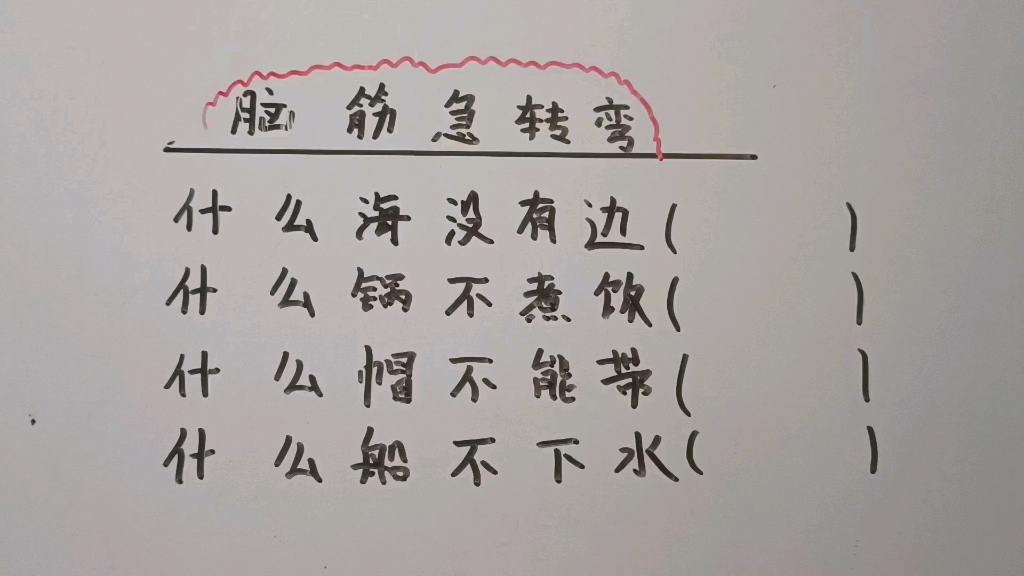 脑筋急转弯
什么海没有边( )
什么锅不煮饭( )
什么帽不能带( )
什么船不下水( )